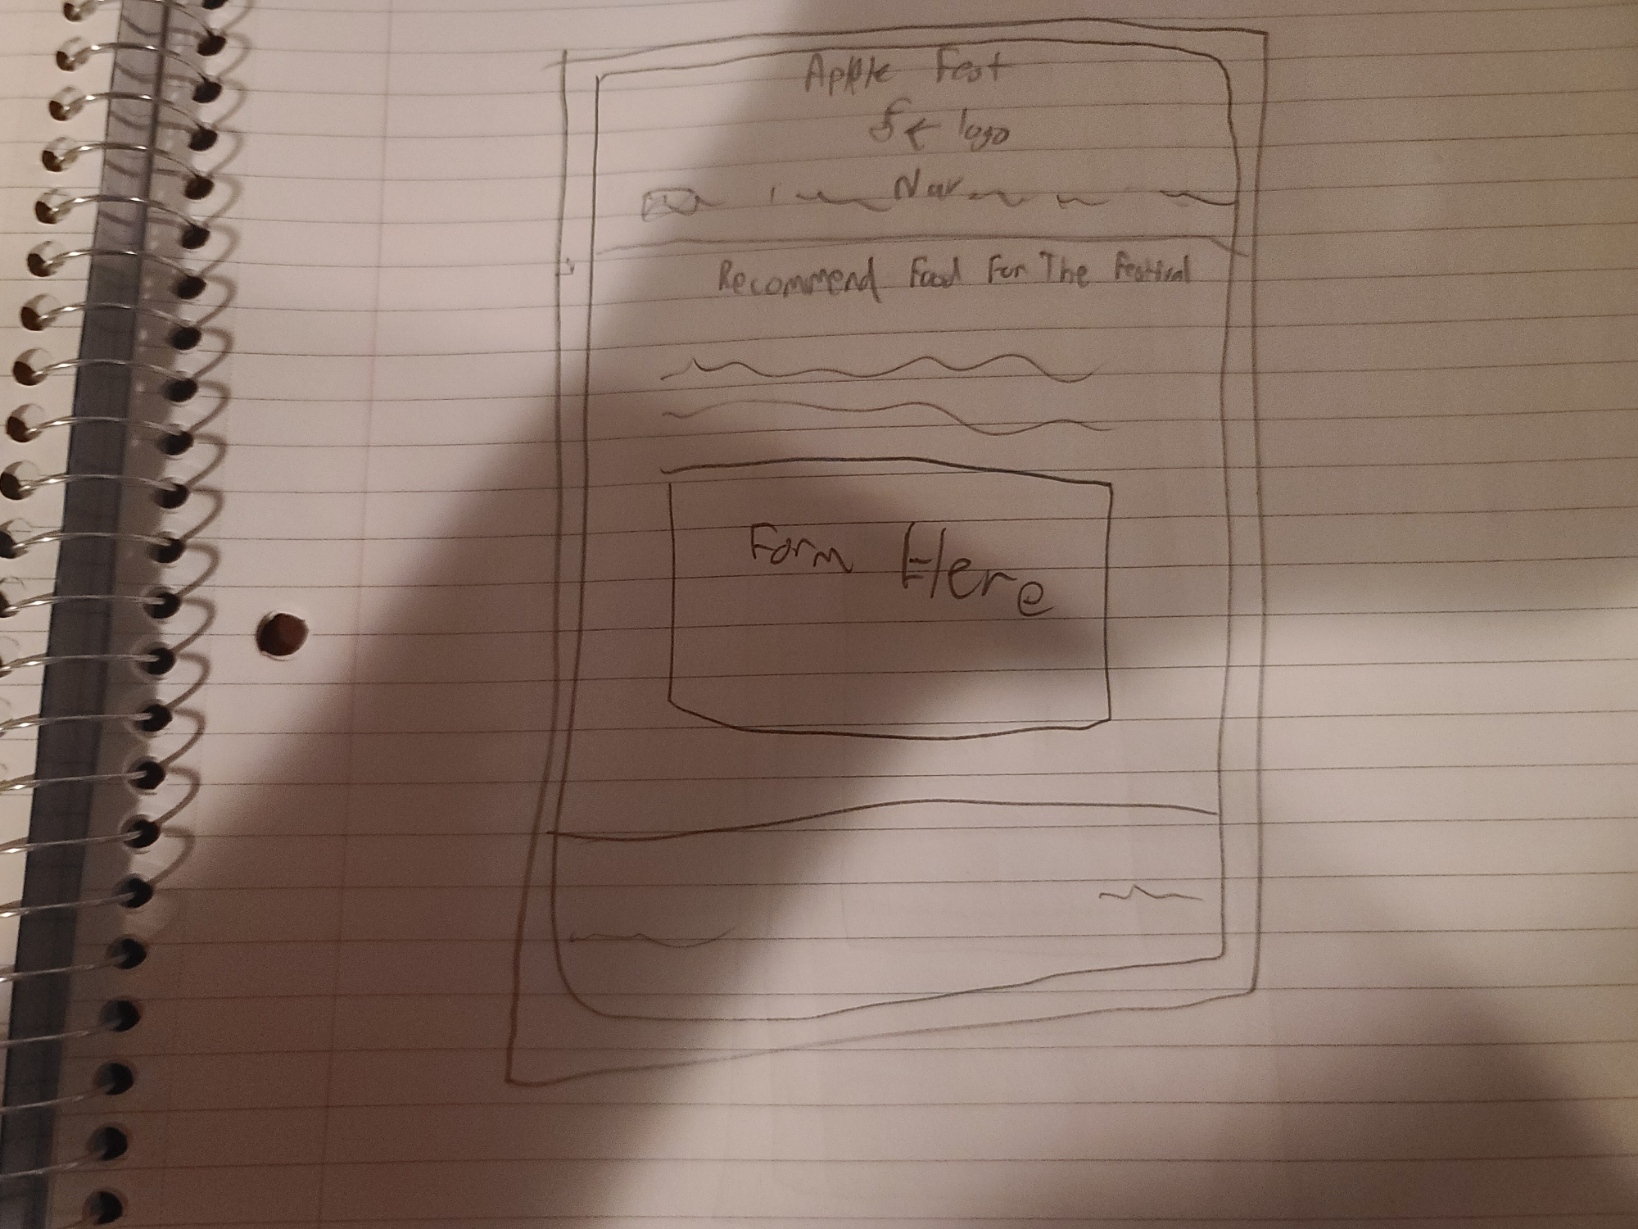 Apple Fest
logo
Nav
Recommend Food For The Festival
Form Here